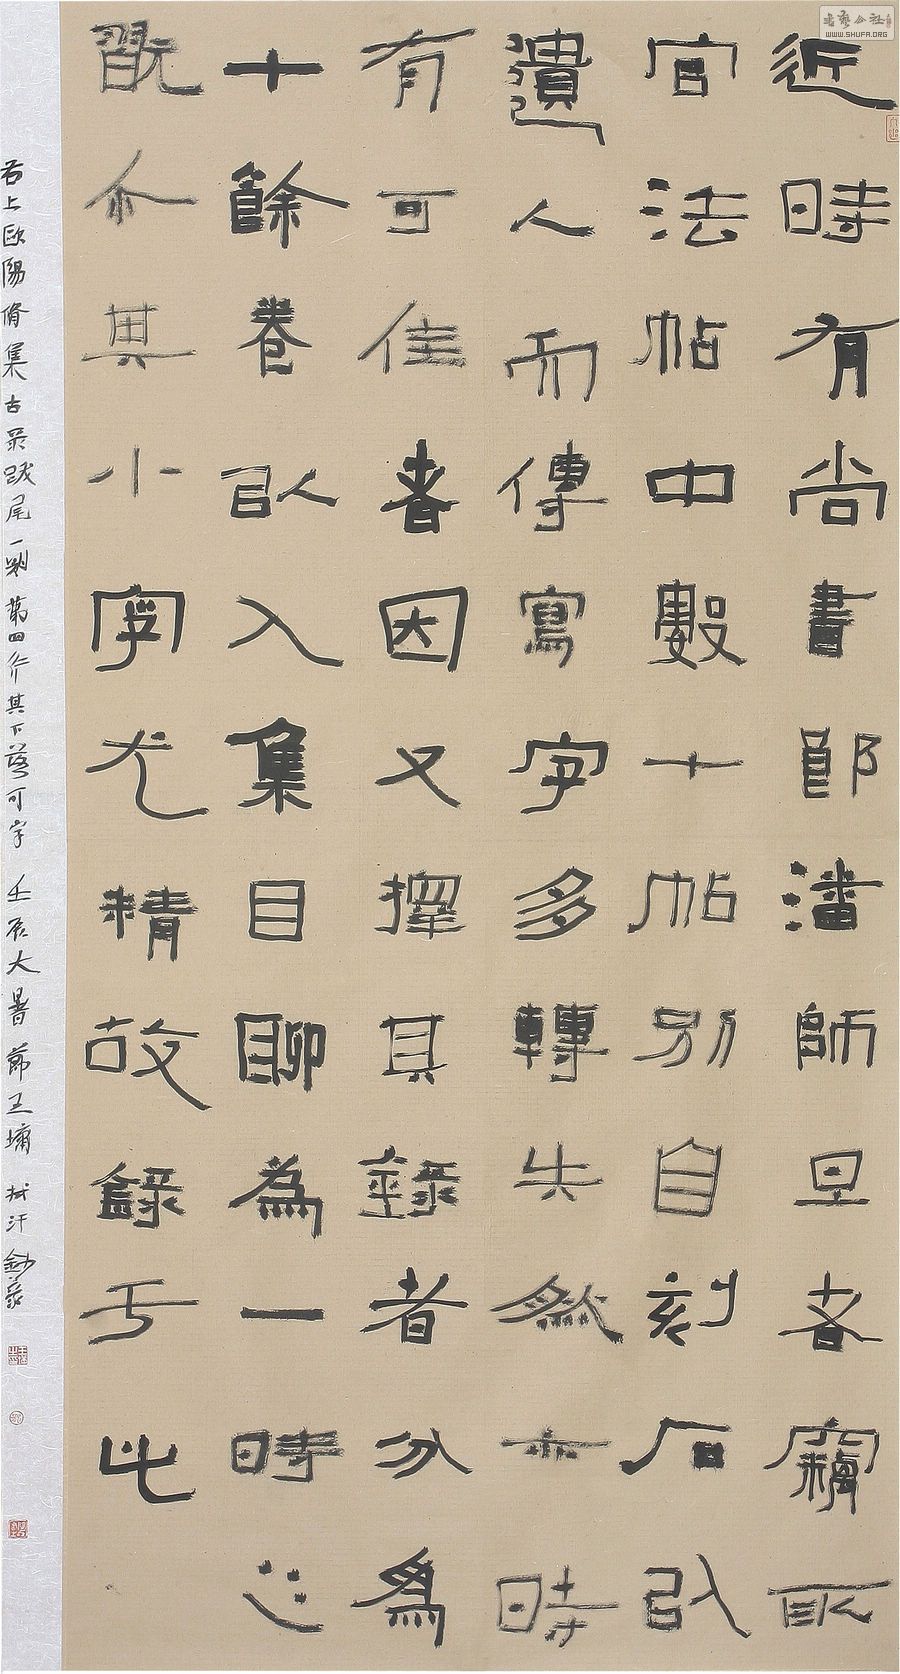 近時有尚書郎潘師旦者竊取
官法帖中數十帖別自刻石以
遺人而傳寫字多轉失然亦時
有可佳者因又擇其錄者分為
十餘卷以入集目聊為一時之
翫尒其小字尤精故錄于此
右上歐陽脩集古录跋尾一則第四行其下落可字 壬辰大暑節王墉拭汗鈔
書藝公社
WWW.SHUFA.ORG